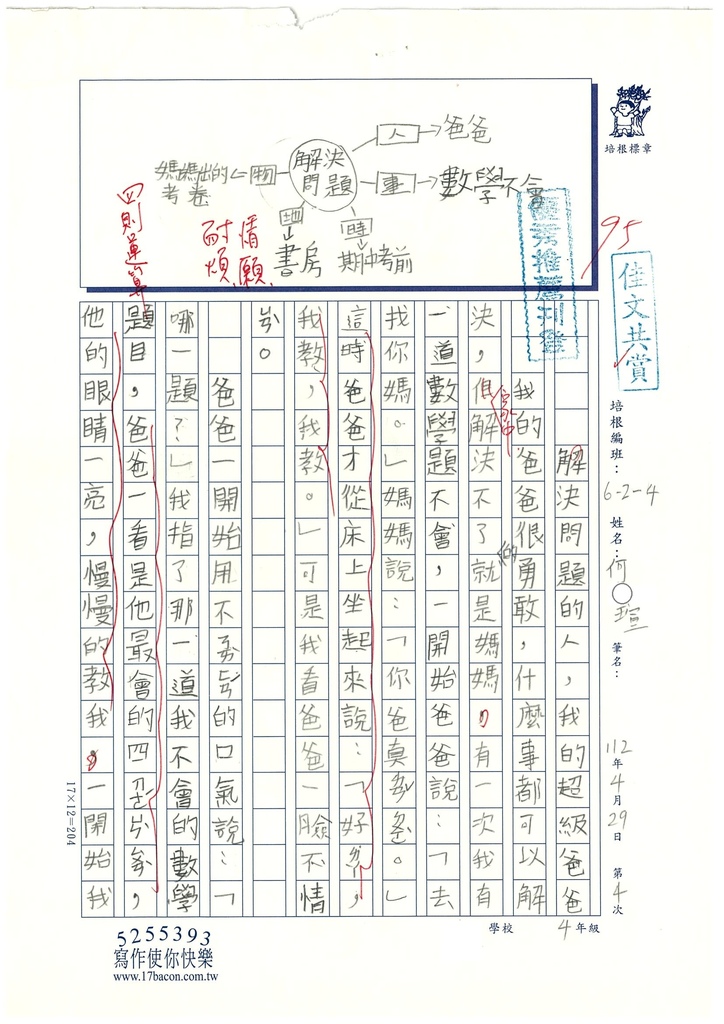 培根標章
解決問題
人→爸爸
事→數學不會
時→期中考前
地→書房
物→媽媽出的考卷
四則運算
耐煩
情願
95
優秀推薦刊登
佳文共賞
培根編班：6-2-4
姓名：何○瑄
筆名：
112年4月29日 第4次
學校 4年級
解決問題的人，我的超級爸爸
我的爸爸很勇敢，什麼事都可以解
決，俱解決不了就是媽媽，有一次我有
一道數學題不會，一開始爸爸說：「去
找你媽。」媽媽說：「你爸真
這時爸爸才從床上坐起來說：「好
我教，我教。」可是我看爸爸一臉不情
爸爸一開始用不 的口氣說：「
哪一題？」我指了那一道我不會的數學
題目，爸爸一看是他最會的四
他的眼睛一亮，慢慢的教我。一開始我
17×12=204
5255393
寫作使你快樂
www.17bacon.com.tw